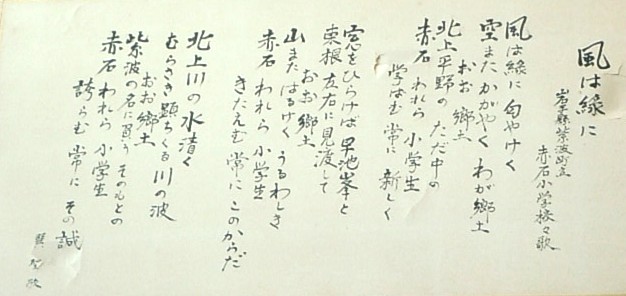 風は緑に
岩手縣紫波町立
赤石小学校々歌
風は緑に 匂やけく
空またかがやく わが郷土
おお 郷土
北上平野の ただ中の
赤石 われら 小学生
学はむ 常に 新しく
窓をひらけば 早池峯と
東根 左右に見渡して
おお 郷土
山またはるけく うるわしき
赤石 われら 小学生
きたえむ 常に このからだ
北上川の 水清く
むらさき 顕ちくる 川の波
おお 郷土
紫波の名に負う そのもとの
赤石 われら 小学生
誇らむ 常に その誠